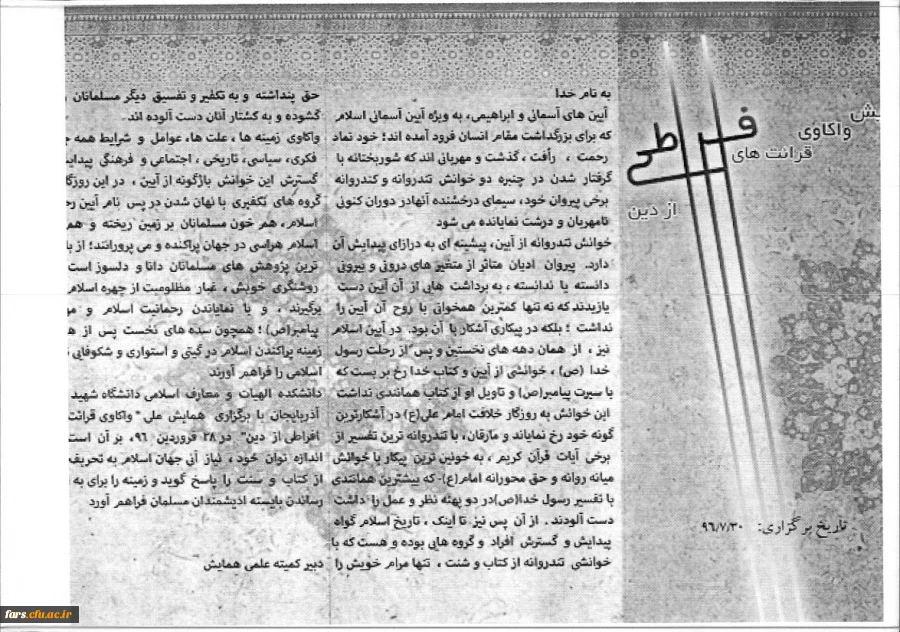 یش
واکاوی
قرائت های
افراطی
از دین
تاریخ برگزاری: ۹۶/۷/۳۰
به نام خدا
آیین های آسمانی و ابراهیمی، به ویژه آیین آسمانی اسلام
که برای بزرگداشت مقام انسان فرود آمده اند؛ خود نماد
رحمت ، رأفت ، گذشت و مهربانی اند که شوربختانه با
گرفتار شدن در چنبره دو خوانش تندروانه و کندروانه
برخی پیروان خود، سیمای درخشنده آنهادر دوران کنونی
نامهربان و درشت نمایانده می شود
خوانش تندروانه از آیین، پیشینه ای به درازای پیدایش آن
دارد. پیروان ادیان متاثر از متغیر های درونی و بیرونی
دانسته یا ندانسته ، به برداشت هایی از آن آیین دست
یازیدند که نه تنها کمترین همخوانی با روح آن آیین را
نداشت ؛ بلکه در پیکاری آشکار با آن بود. در آیین اسلام
نیز ، از همان دهه های نخستین و پس از رحلت رسول
خدا (ص) ، خوانشی از آیین و کتاب خدا رخ بر بست که
با سیرت پیامبر(ص) و تاویل او از کتاب همانندی نداشت
این خوانش به روزگار خلافت امام علی(ع) در آشکارترین
گونه خود رخ نمایاند و مارقان، با تندروانه ترین تفسیر از
برخی آیات قرآن کریم ، به خونین ترین پیکار با خوانش
میانه روانه و حق محورانه امام(ع)- که بیشترین همانندی
با تفسیر رسول خدا(ص)در دو پهنه نظر و عمل را داشت
دست آلودند . از آن پس نیز تا اینک ، تاریخ اسلام گواه
پیدایش و گسترش افراد و گروه هایی بوده و هست که با
خوانشی تندروانه از کتاب و سنت ، تنها مرام خویش را
حق پنداشته و به تکفیر و تفسیق دیگر مسلمانان
گشوده و به کشتار آنان دست آلوده اند
واکاوی زمینه ها ، علت ها، عوامل و شرایط همه
فکری، سیاسی، تاریخی ، اجتماعی و فرهنگی پیدای
گسترش این خوانش باژگونه از آیین ، در این روزگا
گروه های تکفیری با نهان شدن در پس نام آیین رح
اسلام ، هم خون مسلمانان بر زمین ریخته و هم
اسلام هراسی در جهان پراکنده و می پرورانند؛ از با
ترین پژوهش های مسلمانان دانا و دلسوز است
روشنگری خویش ، غبار مظلومیت از چهره اسلام
برگیرند ، و با نمایاندن رحمانیت اسلام و مه
پیامبر(ص) ؛ همچون سده های نخست پس از ه
زمینه پراکندن اسلام در گیتی و استواری و شکوفایی
اسلامی را فراهم آورند
دانشکده الهیات و معارف اسلامی دانشگاه شهید
آذربایجان با برگزاری همایش ملی " واکاوی قرائت
افراطی از دین" در ۲۸ فروردین ۹۶، بر آن است
اندازه توان خود ، نیاز آنی جهان اسلام به تحریف
از کتاب و سنت را پاسخ گوید و زمینه را برای به
رساندن بایسته اندیشمندان مسلمان فراهم آورد
دبیر کمیته علمی همایش
fars.cfu.ac.ir